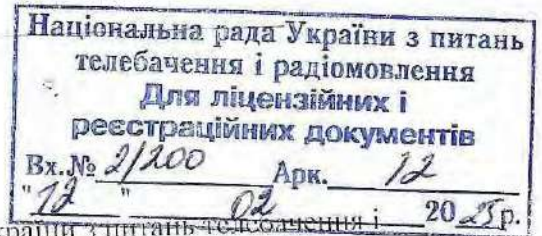 Національна рада України з питань
телебачення і радіомовлення
Для ліцензійних і
реєстраційних документів
Вх.№ 2/200 Арк. 12
"12" 02 2025р.
країни з питань телебачення і